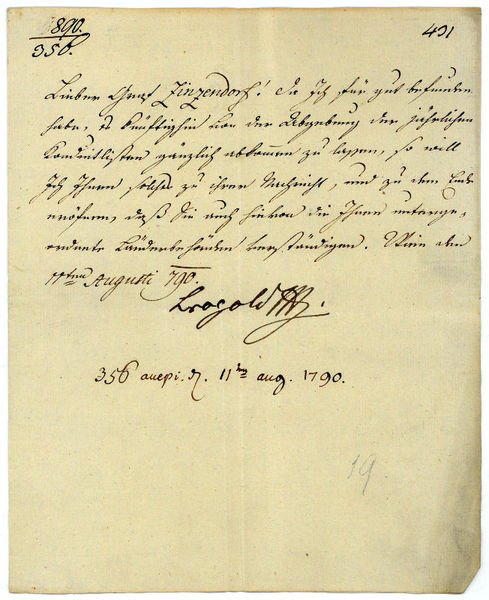 890.
356.
431
Lieber Graf Zinzendorf! Da Ich für gut befunden
habe, es künftighin von der Abgebung der jährlichen
Konduitlisten gänzlich abkommen zu lassen, so will
Ich Ihnen solches zu ihrer Nachricht, und zu dem Ende
eröfnen, daß Sie auch hievon die Ihnen unterge-
ordnete Länderbehörden verständigen. Wien den
11ten Augusti 790.
Leopold
356 accepi. d. 11ten aug. 1790.
19